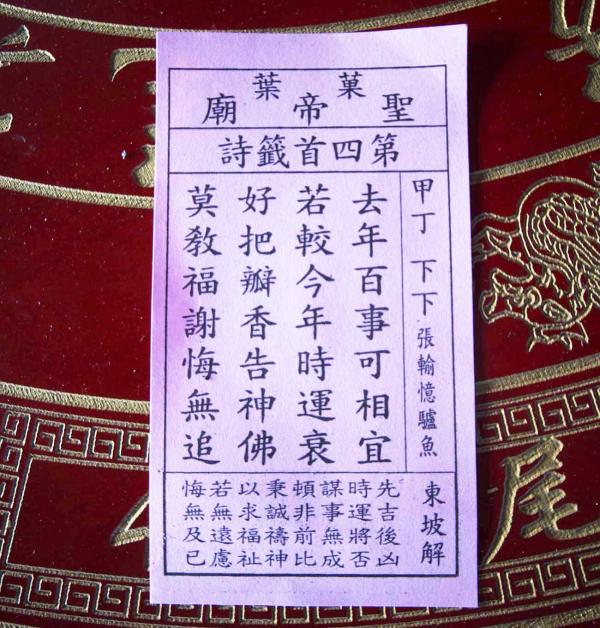 菓葉
聖帝廟
第四首籤詩
甲丁 下下 張輸憶驢魚
去年百事可相宜
若較今年時運衰
好把瓣香告神佛
莫敎福謝悔無追
東坡解
先吉後凶
時運將否
謀事無成
頓非前比
秉誠禱神
以求福祉
若無遠慮
悔無及已
尾